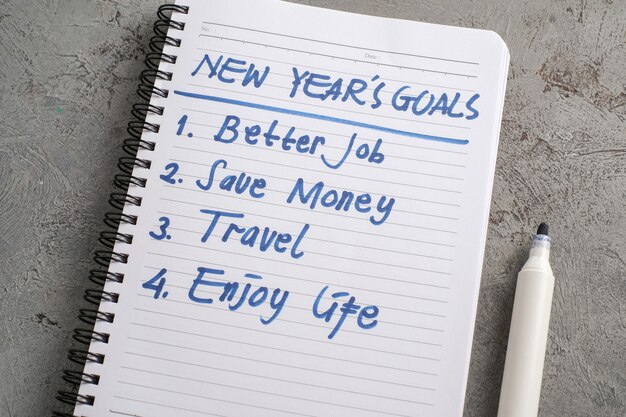 No
Date :
NEW YEAR'S GOALS
1. Better Job
2. Save Money
3. Travel
4. Enjoy life